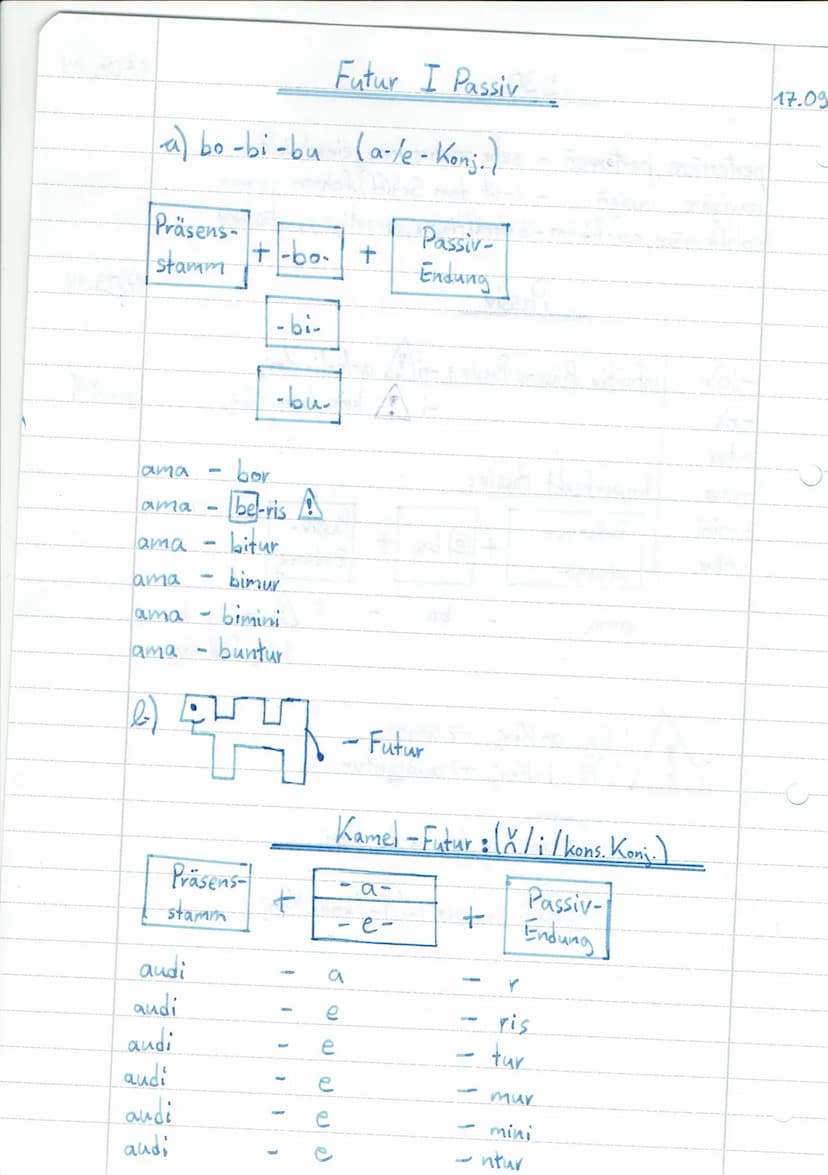 Futur I Passiv
17.09
a) bo-bi-bu (a-/e-Konj.)
Präsens-stamm + -bo- + Passiv-Endung
-bi-
-bu- !
ama - bor
ama - be-ris !
ama - bitur
ama - bimur
ama - bimini
ama - buntur
b) - Futur
Kamel-Futur: (ĭ/i/kons. Konj.)
Präsens-stamm + -a- -e- + Passiv-Endung
audi - a - r
audi - e - ris
audi - e - tur
audi - e - mur
audi - e - mini
audi - e - ntur